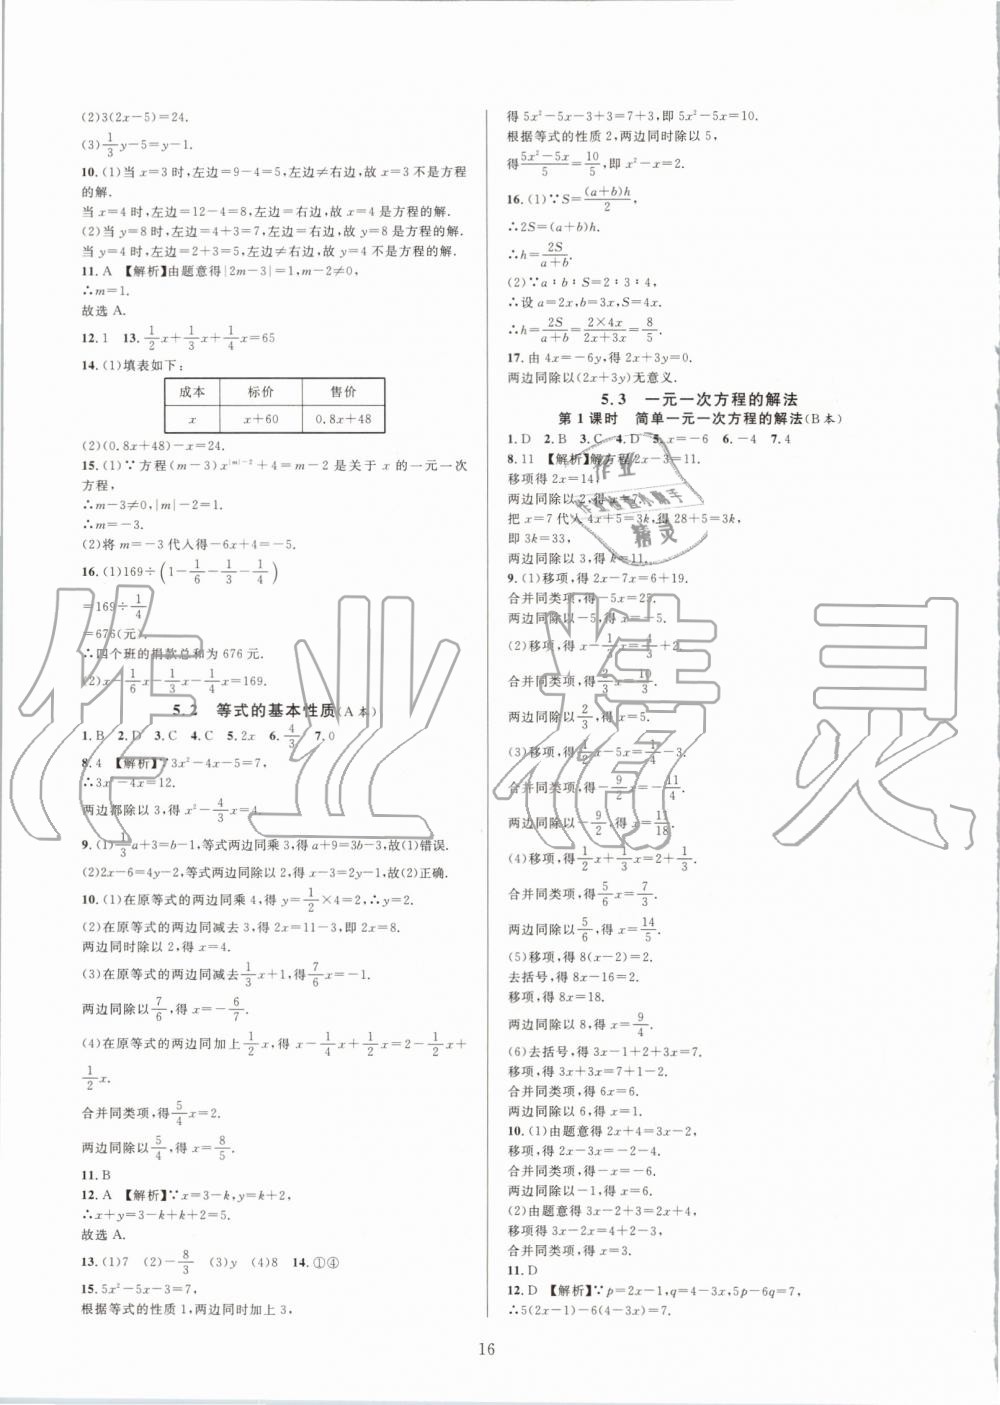 (2)3(2x-5)=24.
(3)1/3y-5=y-1.
10. (1)当 x=3 时,左边=9-4=5,左边≠右边,故 x=3 不是方程
的解.
当 x=4 时,左边=12-4=8,左边=右边,故 x=4 是方程的解.
(2)当 y=8 时,左边=4+3=7,左边=右边,故 y=8 是方程的解.
当 y=4 时,左边=2+3=5,左边≠右边,故 y=4 不是方程的解.
11. A 【解析】由题意得|2m-3|=1,m-2≠0,
∴m=1.
故选 A.
12. 1 13. 1/2x+1/3x+1/4x=65
14. (1)填表如下:
成本 标价 售价
x x+60 0.8x+48
(2)(0.8x+48)-x=24.
15. (1)∵方程(m-3)x^{|m|-2}+4=m-2 是关于 x 的一元一次
方程,
∴m-3≠0,|m|-2=1.
∴m=-3.
(2)将 m=-3 代入得-6x+4=-5.
16. (1)169÷(1-1/6-1/3-1/4)
=169÷1/4
=676(元).
∴四个班的捐款总和为 676 元.
(2)x-1/6x-1/3x-1/4x=169.
5.2 等式的基本性质(A本)
1. B 2. D 3. C 4. C 5. 2x 6. 4/3 7. 0
8. 4 【解析】∵3x²-4x-5=7,
∴3x²-4x=12.
两边都除以 3,得 x²-4/3x=4.
9. (1)1/3a+3=b-1,等式两边同乘 3,得 a+9=3b-3,故(1)错误.
(2)2x-6=4y-2,等式两边同除以 2,得 x-3=2y-1,故(2)正确.
10. (1)在原等式的两边同乘 4,得 y=1/2×4=2,∴y=2.
(2)在原等式的两边同减去 3,得 2x=11-3,即 2x=8.
两边同时除以 2,得 x=4.
(3)在原等式的两边同减去1/3x+1,得7/6x=-1.
两边同除以7/6,得 x=-6/7.
(4)在原等式的两边同加上1/2x,得 x-1/4x+1/2x=2-1/2x+
1/2x.
合并同类项,得5/4x=2.
两边同除以5/4,得 x=8/5.
11. B
12. A 【解析】∵x=3-k,y=k+2,
∴x+y=3-k+k+2=5.
故选 A.
13. (1)7 (2)-8/3 (3)y (4)8 14. ①④
15. 5x²-5x-3=7,
根据等式的性质 1,两边同时加上 3,
得 5x²-5x-3+3=7+3,即 5x²-5x=10.
根据等式的性质 2,两边同时除以 5,
得(5x²-5x)/5=10/5,即 x²-x=2.
16. (1)∵S=(a+b)h/2,
∴2S=(a+b)h.
∴h=2S/(a+b).
(2)∵a∶b∶S=2∶3∶4,
∴设 a=2x,b=3x,S=4x.
∴h=2S/(a+b)=(2×4x)/(2x+3x)=8/5.
17. 由 4x=-6y,得 2x+3y=0.
两边同除以(2x+3y)无意义.
5.3 一元一次方程的解法
第 1 课时 简单一元一次方程的解法(B本)
1. D 2. B 3. C 4. D 5. x=-6 6. -4 7. 4
8. 11 【解析】解方程 2x-3=11.
移项得 2x=14,
两边同除以 2,得 x=7.
把 x=7 代入 4x+5=3k,得 28+5=3k,
即 3k=33,
两边同除以 3,得 k=11.
9. (1)移项,得 2x-7x=6+19.
合并同类项,得-5x=25.
两边同除以-5,得 x=-5.
(2)移项,得 x-1/3x=4/3+2.
合并同类项,得2/3x=10/3.
两边同除以2/3,得 x=5.
(3)移项,得1/2x-5x=1/4-3.
合并同类项,得-9/2x=-11/4.
两边同除以-9/2,得 x=11/18.
(4)移项,得1/2x+1/3x=2+1/3.
合并同类项,得5/6x=7/3.
两边同除以5/6,得 x=14/5.
(5)移项,得 8(x-2)=2.
去括号,得 8x-16=2.
移项,得 8x=18.
两边同除以 8,得 x=9/4.
(6)去括号,得 3x-1+2+3x=7.
移项,得 3x+3x=7+1-2.
合并同类项,得 6x=6.
两边同除以 6,得 x=1.
10. (1)由题意得 2x+4=3x-2,
移项,得 2x-3x=-2-4.
合并同类项,得-x=-6.
两边同除以-1,得 x=6.
(2)由题意得 3x-2+3=2x+4,
移项得 3x-2x=4+2-3,
合并同类项,得 x=3.
11. D
12. D 【解析】∵p=2x-1,q=4-3x,5p-6q=7,
∴5(2x-1)-6(4-3x)=7.
16
作业精灵
作业
作业检查小助手
精灵